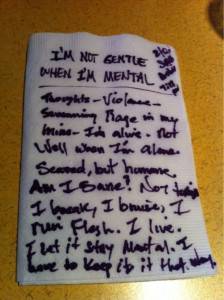 I'M NOT GENTLE
WHEN I'M MENTAL
Thoughts - Violence -
Screaming Rage in my
mind - I'm alive. Not
Well when I'm alone.
Scared, but human.
Am I Sane? Not
I break, I bruise, I
run Flesh. I live.
I let it stay Mental. I
have to Keep it that way.